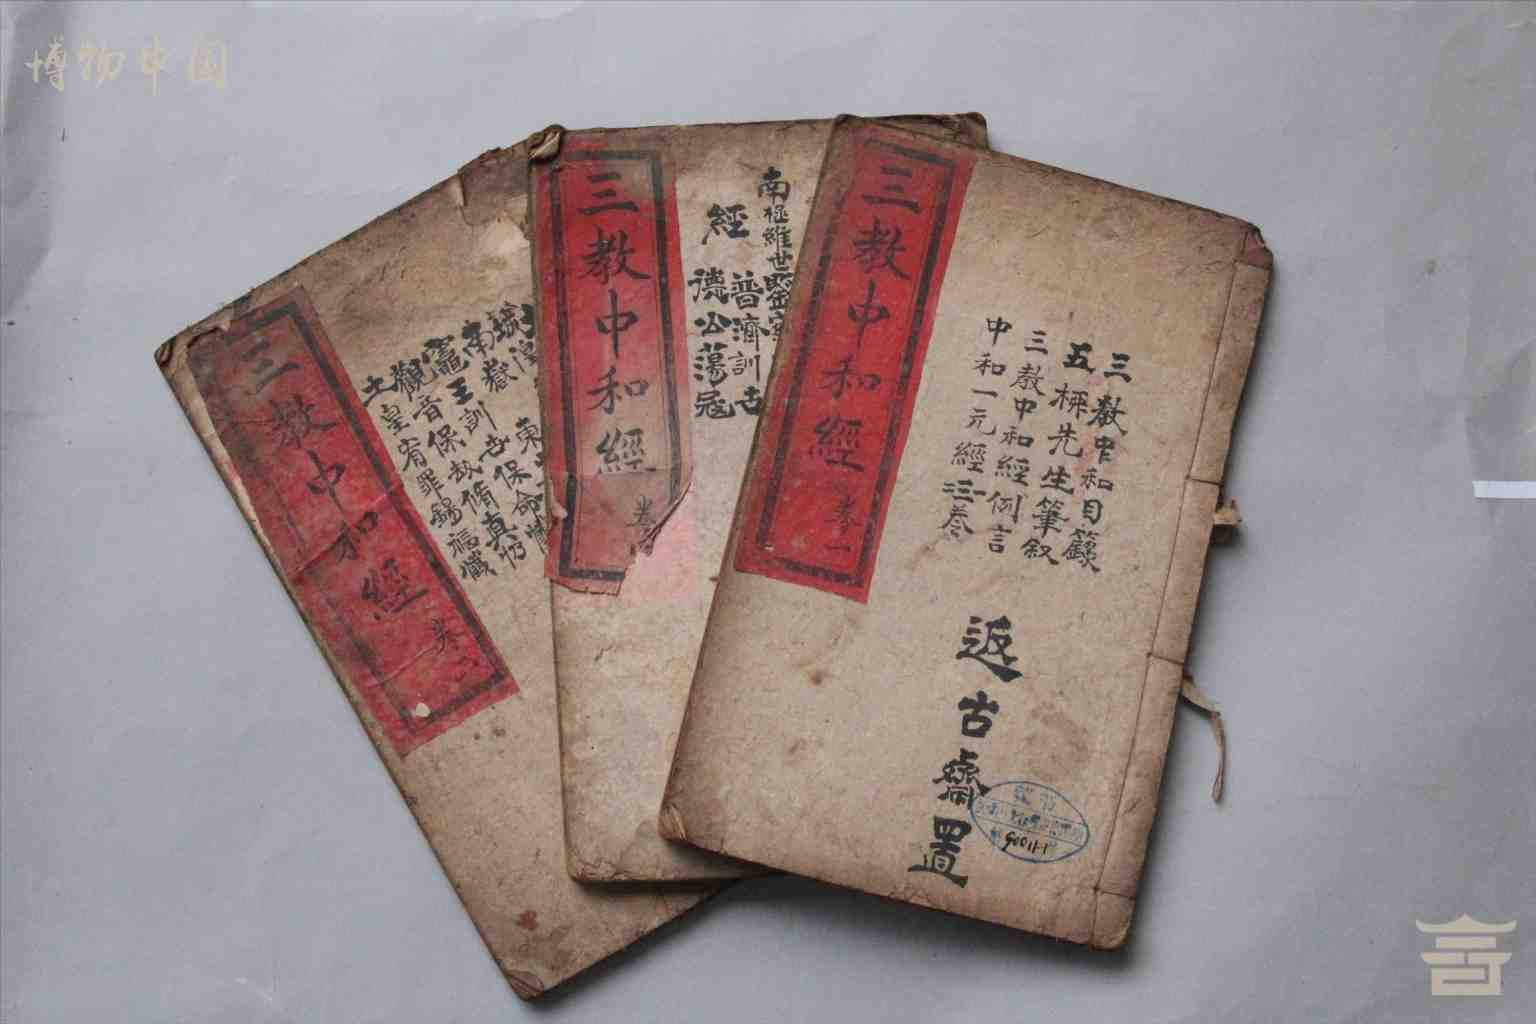 博物中国
三教中和經 卷一
三教中和目錄
五柳先生筆叙
三教中和經例言
中和一元經三卷
返古齋置
三教中和經 卷
南極維世
經 普濟訓古
德公蕩寇
三教中和經 卷
城隍
南嶽 東
竈王訓世保命懺
觀音保劫脩真
土皇宥罪錫福懺